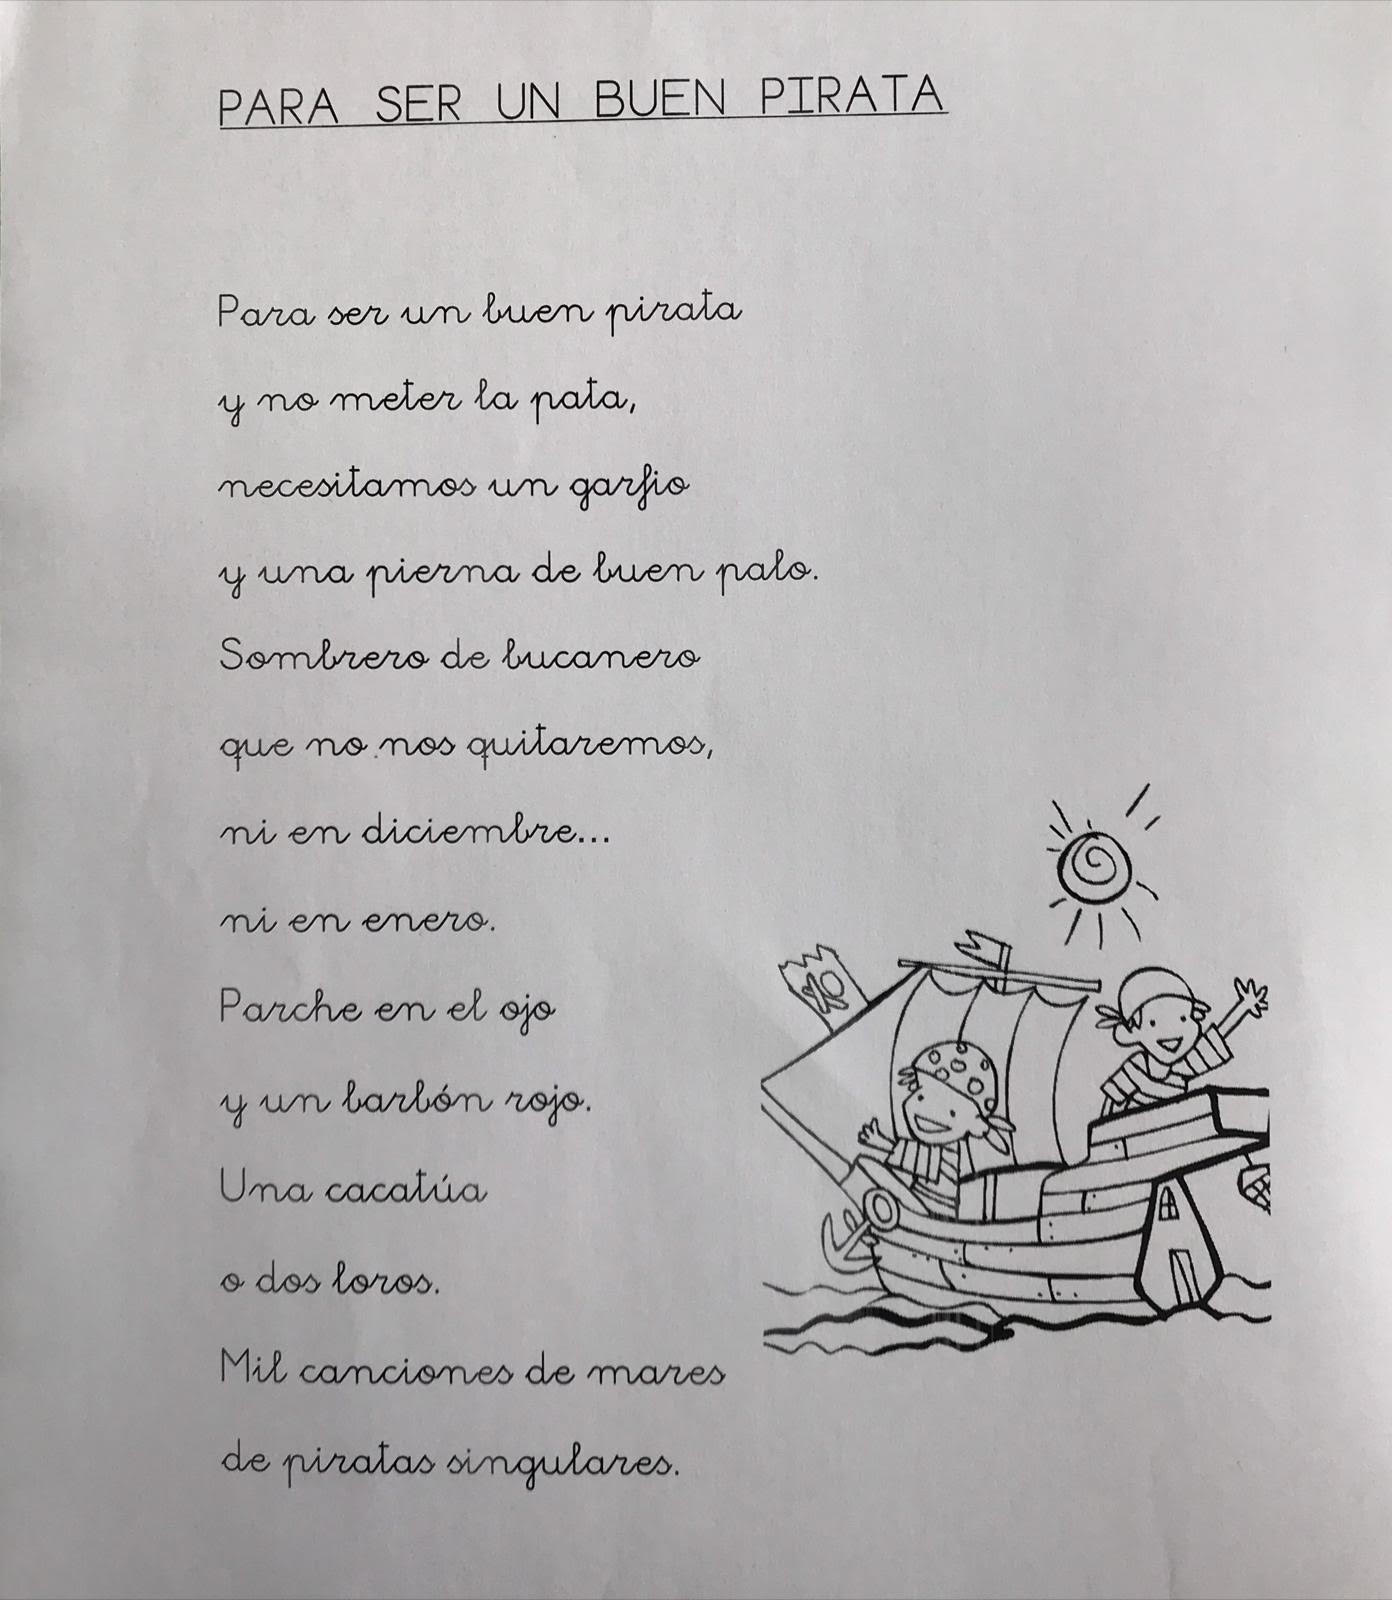 PARA SER UN BUEN PIRATA
Para ser un buen pirata
y no meter la pata,
necesitamos un garfio
y una pierna de buen palo.
Sombrero de bucanero
que no nos quitaremos,
ni en diciembre...
ni en enero.
Parche en el ojo
y un barbón rojo.
Una cacatúa
o dos loros.
Mil canciones de mares
de piratas singulares.